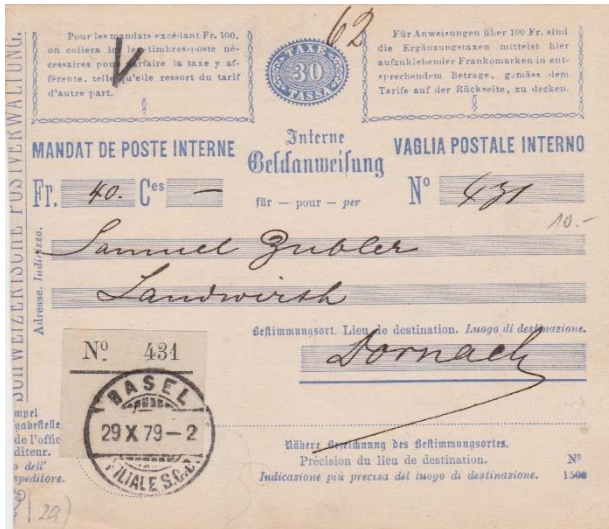 Pour les mandats excédant Fr. 100,
on collera ici les timbres-poste né-
cessaires pour parfaire la taxe y af-
férente, telle qu'elle ressort du tarif
d'autre part.
V
62
TAXE
30
TASSA
Für Anweisungen über 100 Fr. sind
die Ergänzungstaxen mittelst hier
aufzuklebender Frankomarken in ent-
sprechendem Betrage, gemäss dem
Tarife auf der Rückseite, zu decken.
SCHWEIZERISCHE POSTVERWALTUNG.
MANDAT DE POSTE INTERNE
Interne
Geldanweisung
VAGLIA POSTALE INTERNO
Fr. 40. Ces —
für — pour — per
No 431
10.-
Adresse. Indirizzo.
Samuel Zubler
Landwirth
Bestimmungsort. Lieu de destination. Luogo di destinazione.
Dornach
No 431
BASEL
29 X 79 — 2
FILIALE S.C.B.
mpel
gabestelle
de l'offic
diteur.
o dell'
speditore.
Nähere Bezeichnung des Bestimmungsortes.
Précision du lieu de destination.
Indicazione più precisa del luogo di destinazione.
No
1500
29)